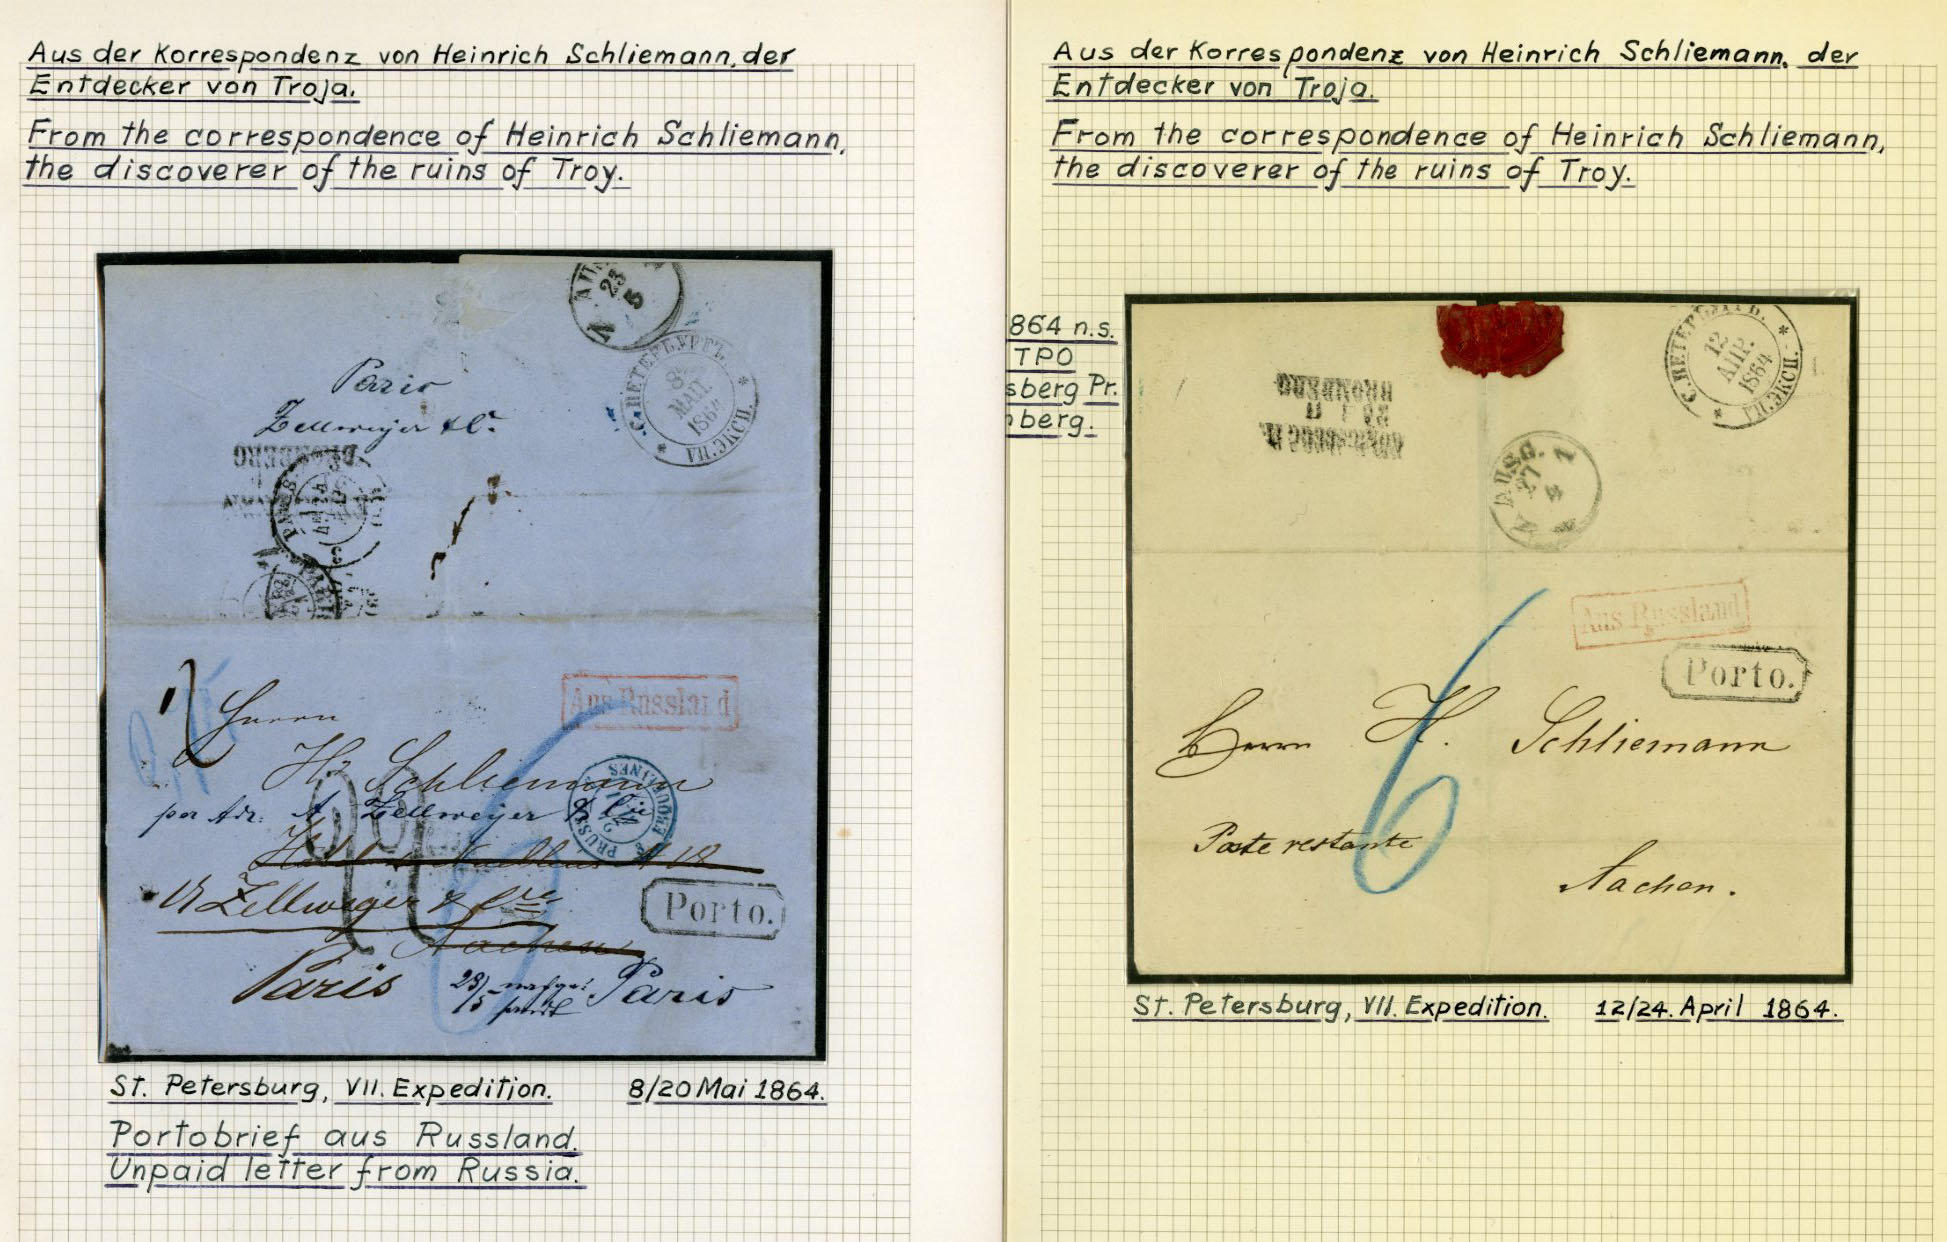 Aus der Korrespondenz von Heinrich Schliemann, der
Entdecker von Troja.
From the correspondence of Heinrich Schliemann,
the discoverer of the ruins of Troy.
AUS
23
5
С.ПЕТЕРБУРГЪ
8
МАЙ.
1864
VII.ЭКСП.
Paris
Zellweger & Co
BROMBERG
Aus Russland
Herrn
Hy Schliemann
per Adr. A. Zellweger & Cie
PRUSSE
ERQUELINES
18
Zellweger & Cie
Porto.
Aachen
Paris
23/5
Paris
St. Petersburg, VII. Expedition. 8/20 Mai 1864.
Portobrief aus Russland.
Unpaid letter from Russia.
Aus der Korrespondenz von Heinrich Schliemann, der
Entdecker von Troja.
From the correspondence of Heinrich Schliemann,
the discoverer of the ruins of Troy.
864 n.s.
TPO
sberg Pr.
berg.
С.ПЕТЕРБУРГЪ.
12
АПР.
1864
VII.ЭКСП.
BROMBERG
AUSG.
27
4
Aus Russland
Porto.
6
Herrn H. Schliemann
Poste restante
Aachen.
St. Petersburg, VII. Expedition. 12/24. April 1864.